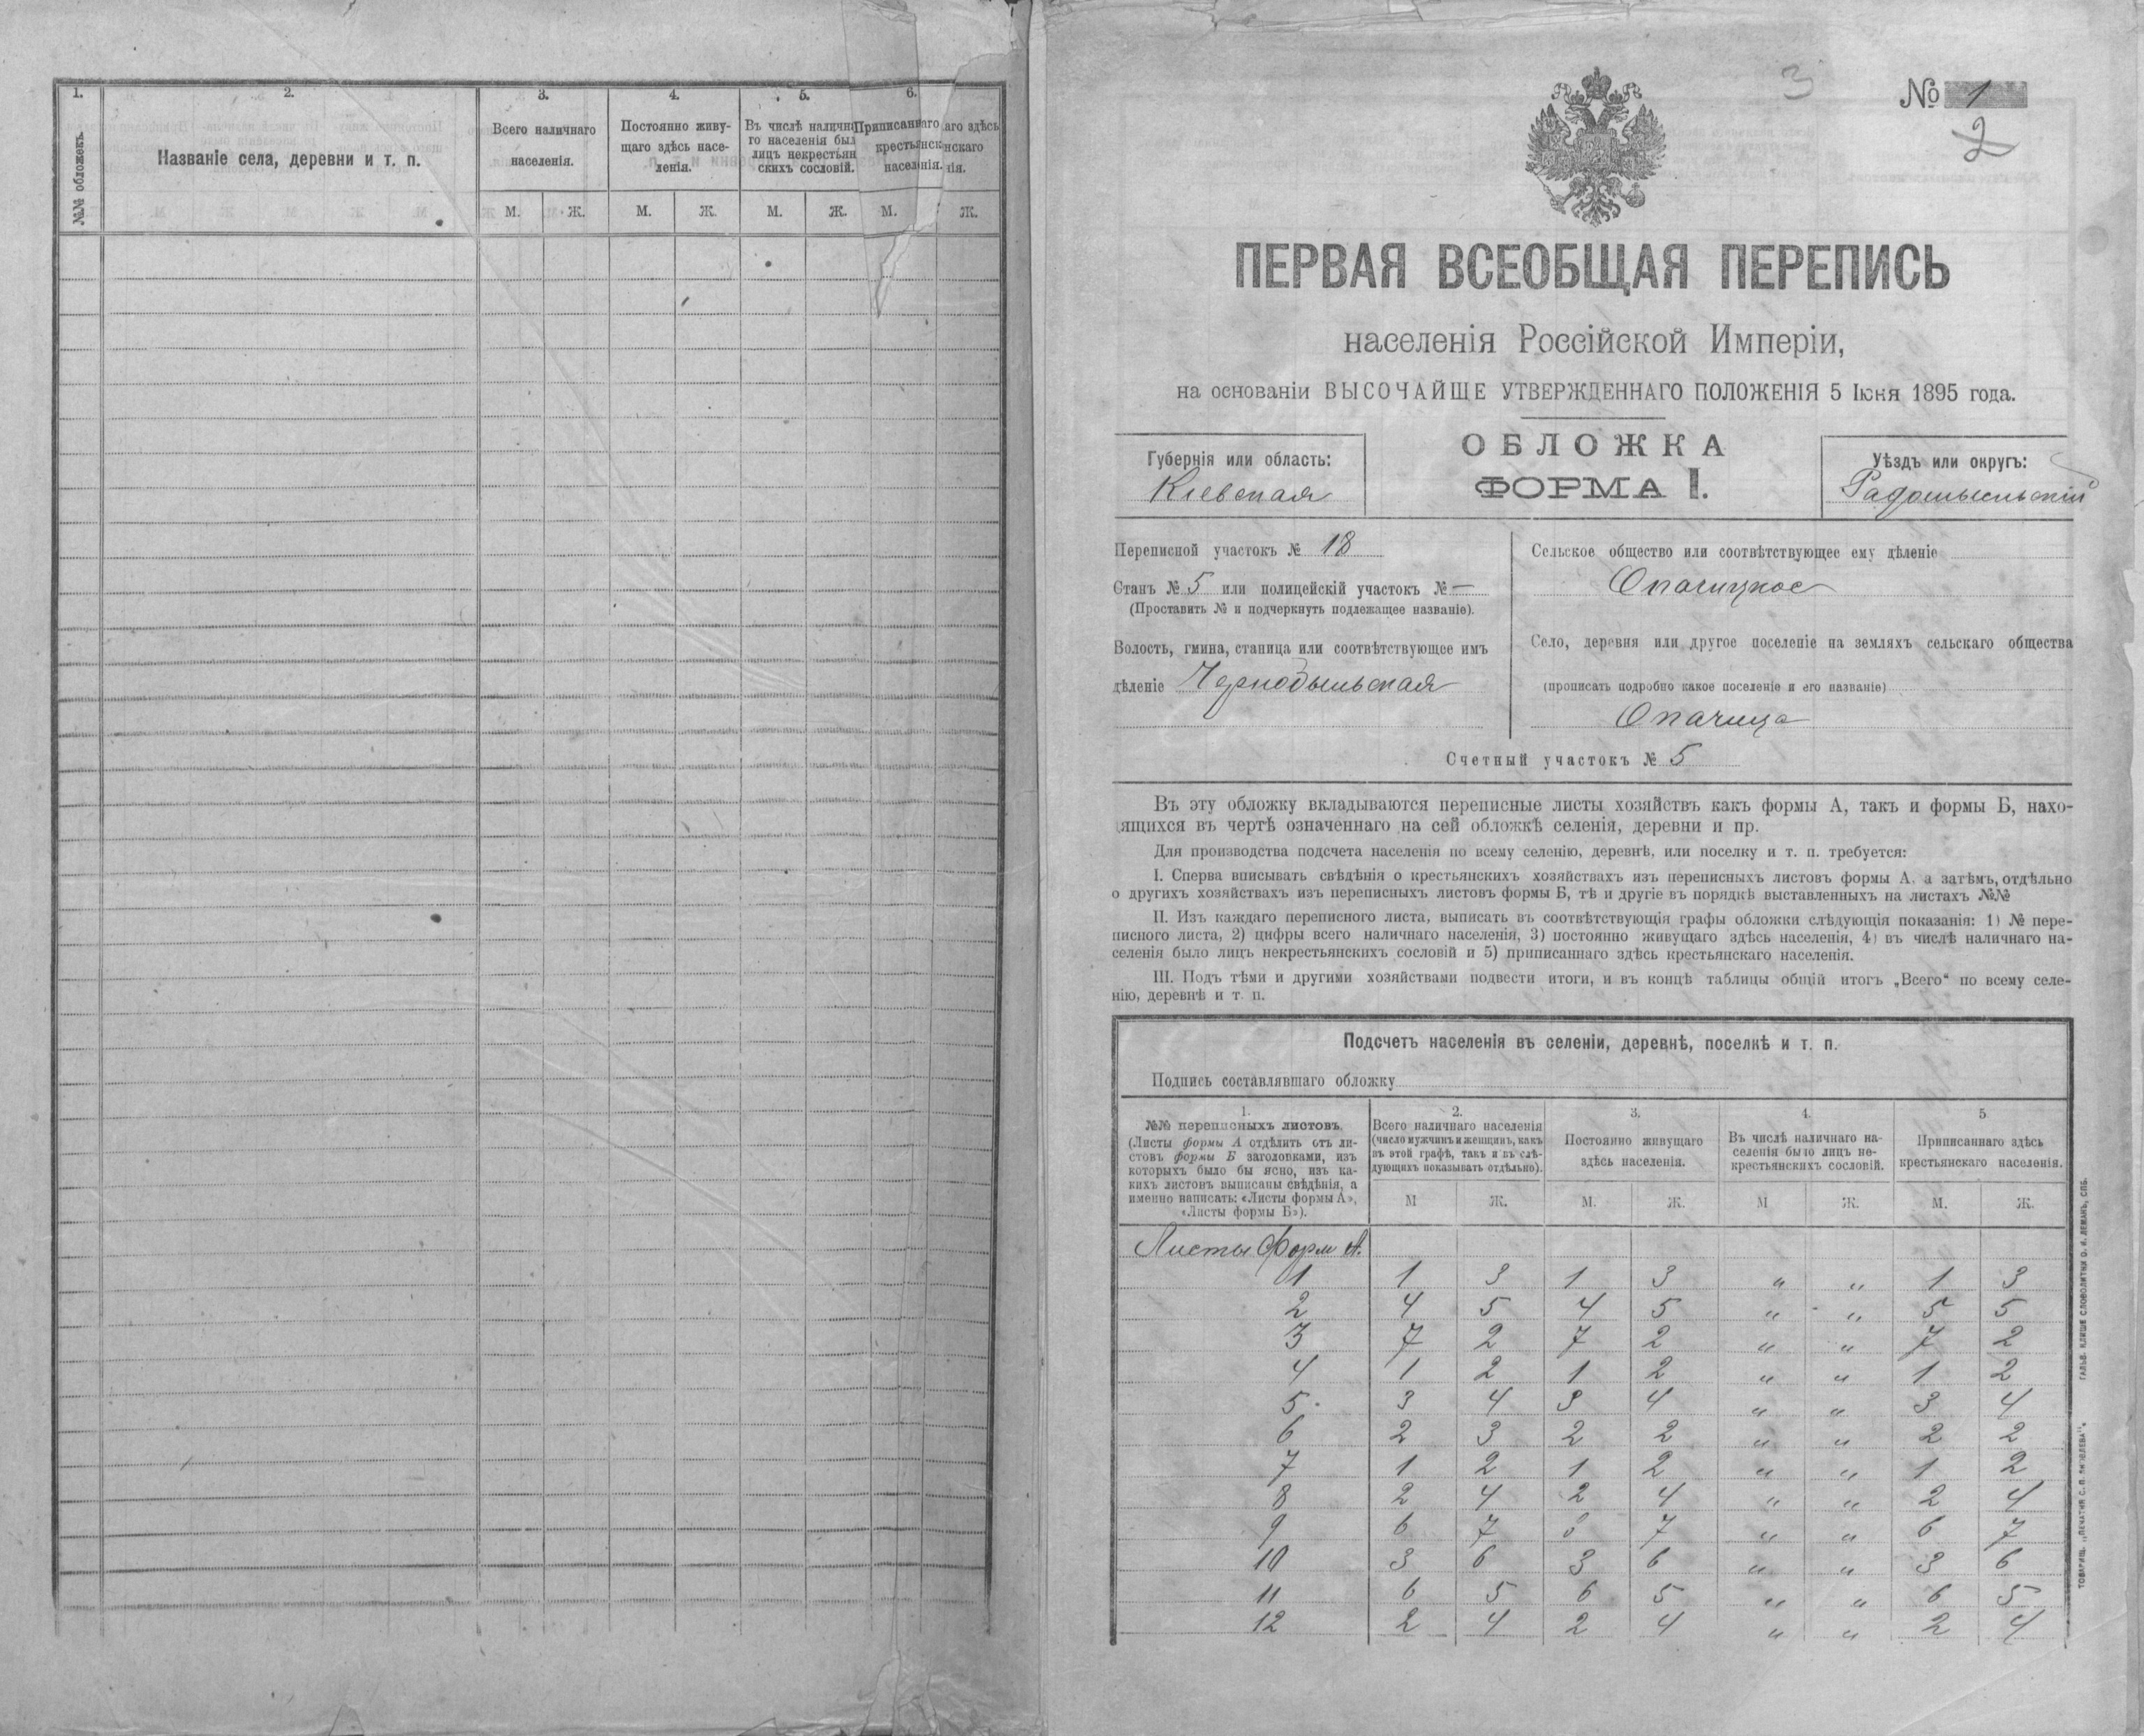 1. 2. 3. 4. 5. 6.
№№ обложекъ.
Названіе села, деревни и т. п.
Всего наличнаго
населенія.
Постоянно живу-
щаго здѣсь насе-
ленія.
Въ числѣ налична
го населенія был
лицъ некрестьян
скихъ сословій.
Приписаннаго
крестьянск
населенія.
аго здѣсь
нскаго
нія.
М. Ж. М. Ж. М. Ж. М. Ж.
3
№ 1
2
ПЕРВАЯ ВСЕОБЩАЯ ПЕРЕПИСЬ
населенія Россійской Имперіи,
на основаніи ВЫСОЧАЙШЕ УТВЕРЖДЕННАГО ПОЛОЖЕНІЯ 5 Іюня 1895 года.
ОБЛОЖКА
ФОРМА I.
Губернія или область:
Кіевская
Уѣздъ или округъ:
Радомысльскій
Переписной участокъ № 18
Станъ № 5 или полицейскій участокъ № —
(Проставить № и подчеркнуть подлежащее названіе).
Волость, гмина, станица или соотвѣтствующее имъ
дѣленіе Чернобыльская
Сельское общество или соотвѣтствующее ему дѣленіе
Опачицкое
Село, деревня или другое поселеніе на земляхъ сельскаго общества
(прописать подробно какое поселеніе и его названіе)
Опачица
Счетный участокъ № 5
Въ эту обложку вкладываются переписные листы хозяйствъ какъ формы А, такъ и формы Б, нахо-
ящихся въ чертѣ означеннаго на сей обложкѣ селенія, деревни и пр.
Для производства подсчета населенія по всему селенію, деревнѣ, или поселку и т. п. требуется:
I. Сперва вписывать свѣдѣнія о крестьянскихъ хозяйствахъ изъ переписныхъ листовъ формы А, а затѣмъ, отдѣльно
о другихъ хозяйствахъ изъ переписныхъ листовъ формы Б, тѣ и другіе въ порядкѣ выставленныхъ на листахъ №№
II. Изъ каждаго переписного листа, выписать въ соотвѣтствующія графы обложки слѣдующія показанія: 1) № пере-
писного листа, 2) цифры всего наличнаго населенія, 3) постоянно живущаго здѣсь населенія, 4) въ числѣ наличнаго на-
селенія было лицъ некрестьянскихъ сословій и 5) приписаннаго здѣсь крестьянскаго населенія.
III. Подъ тѣми и другими хозяйствами подвести итоги, и въ концѣ таблицы общій итогъ „Всего“ по всему селе-
нію, деревнѣ и т. п.
Подсчетъ населенія въ селеніи, деревнѣ, поселкѣ и т. п.
Подпись составлявшаго обложку
1. 2. 3. 4. 5
№№ переписныхъ листовъ.
(Листы формы А отдѣлить отъ ли-
стовъ формы Б заголовками, изъ
которыхъ было бы ясно, изъ ка-
кихъ листовъ выписаны свѣдѣнія, а
именно написать: «Листы формы А»,
«Листы формы Б»).
Всего наличнаго населенія
(число мужчинъ и женщинъ, какъ
въ этой графѣ, такъ и въ слѣ-
дующихъ показывать отдѣльно).
Постоянно живущаго
здѣсь населенія.
Въ числѣ наличнаго на-
селенія было лицъ не-
крестьянскихъ сословій.
Приписаннаго здѣсь
крестьянскаго населенія.
М Ж. М. Ж. М Ж. М. Ж.
Листы Форм А.
1 1 3 1 3 „ „ 1 3
2 4 5 4 5 „ „ 5 5
3 7 2 7 2 „ „ 7 2
4 1 2 1 2 „ „ 1 2
5 3 4 3 4 „ „ 3 4
6 2 3 2 2 „ „ 2 2
7 1 2 1 2 „ „ 1 2
8 2 4 2 4 „ „ 2 4
9 6 7 6 7 „ „ 6 7
10 3 6 3 6 „ „ 3 6
11 6 5 6 5 „ „ 6 5
12 2 4 2 4 „ „ 2 4
ТОВАРИЩ. „ПЕЧАТНЯ С. П. ЯКОВЛЕВА“. ГАЛЬВ. КЛИШЕ СЛОВОЛИТНИ О. И. ЛЕМАНЪ, СПБ.